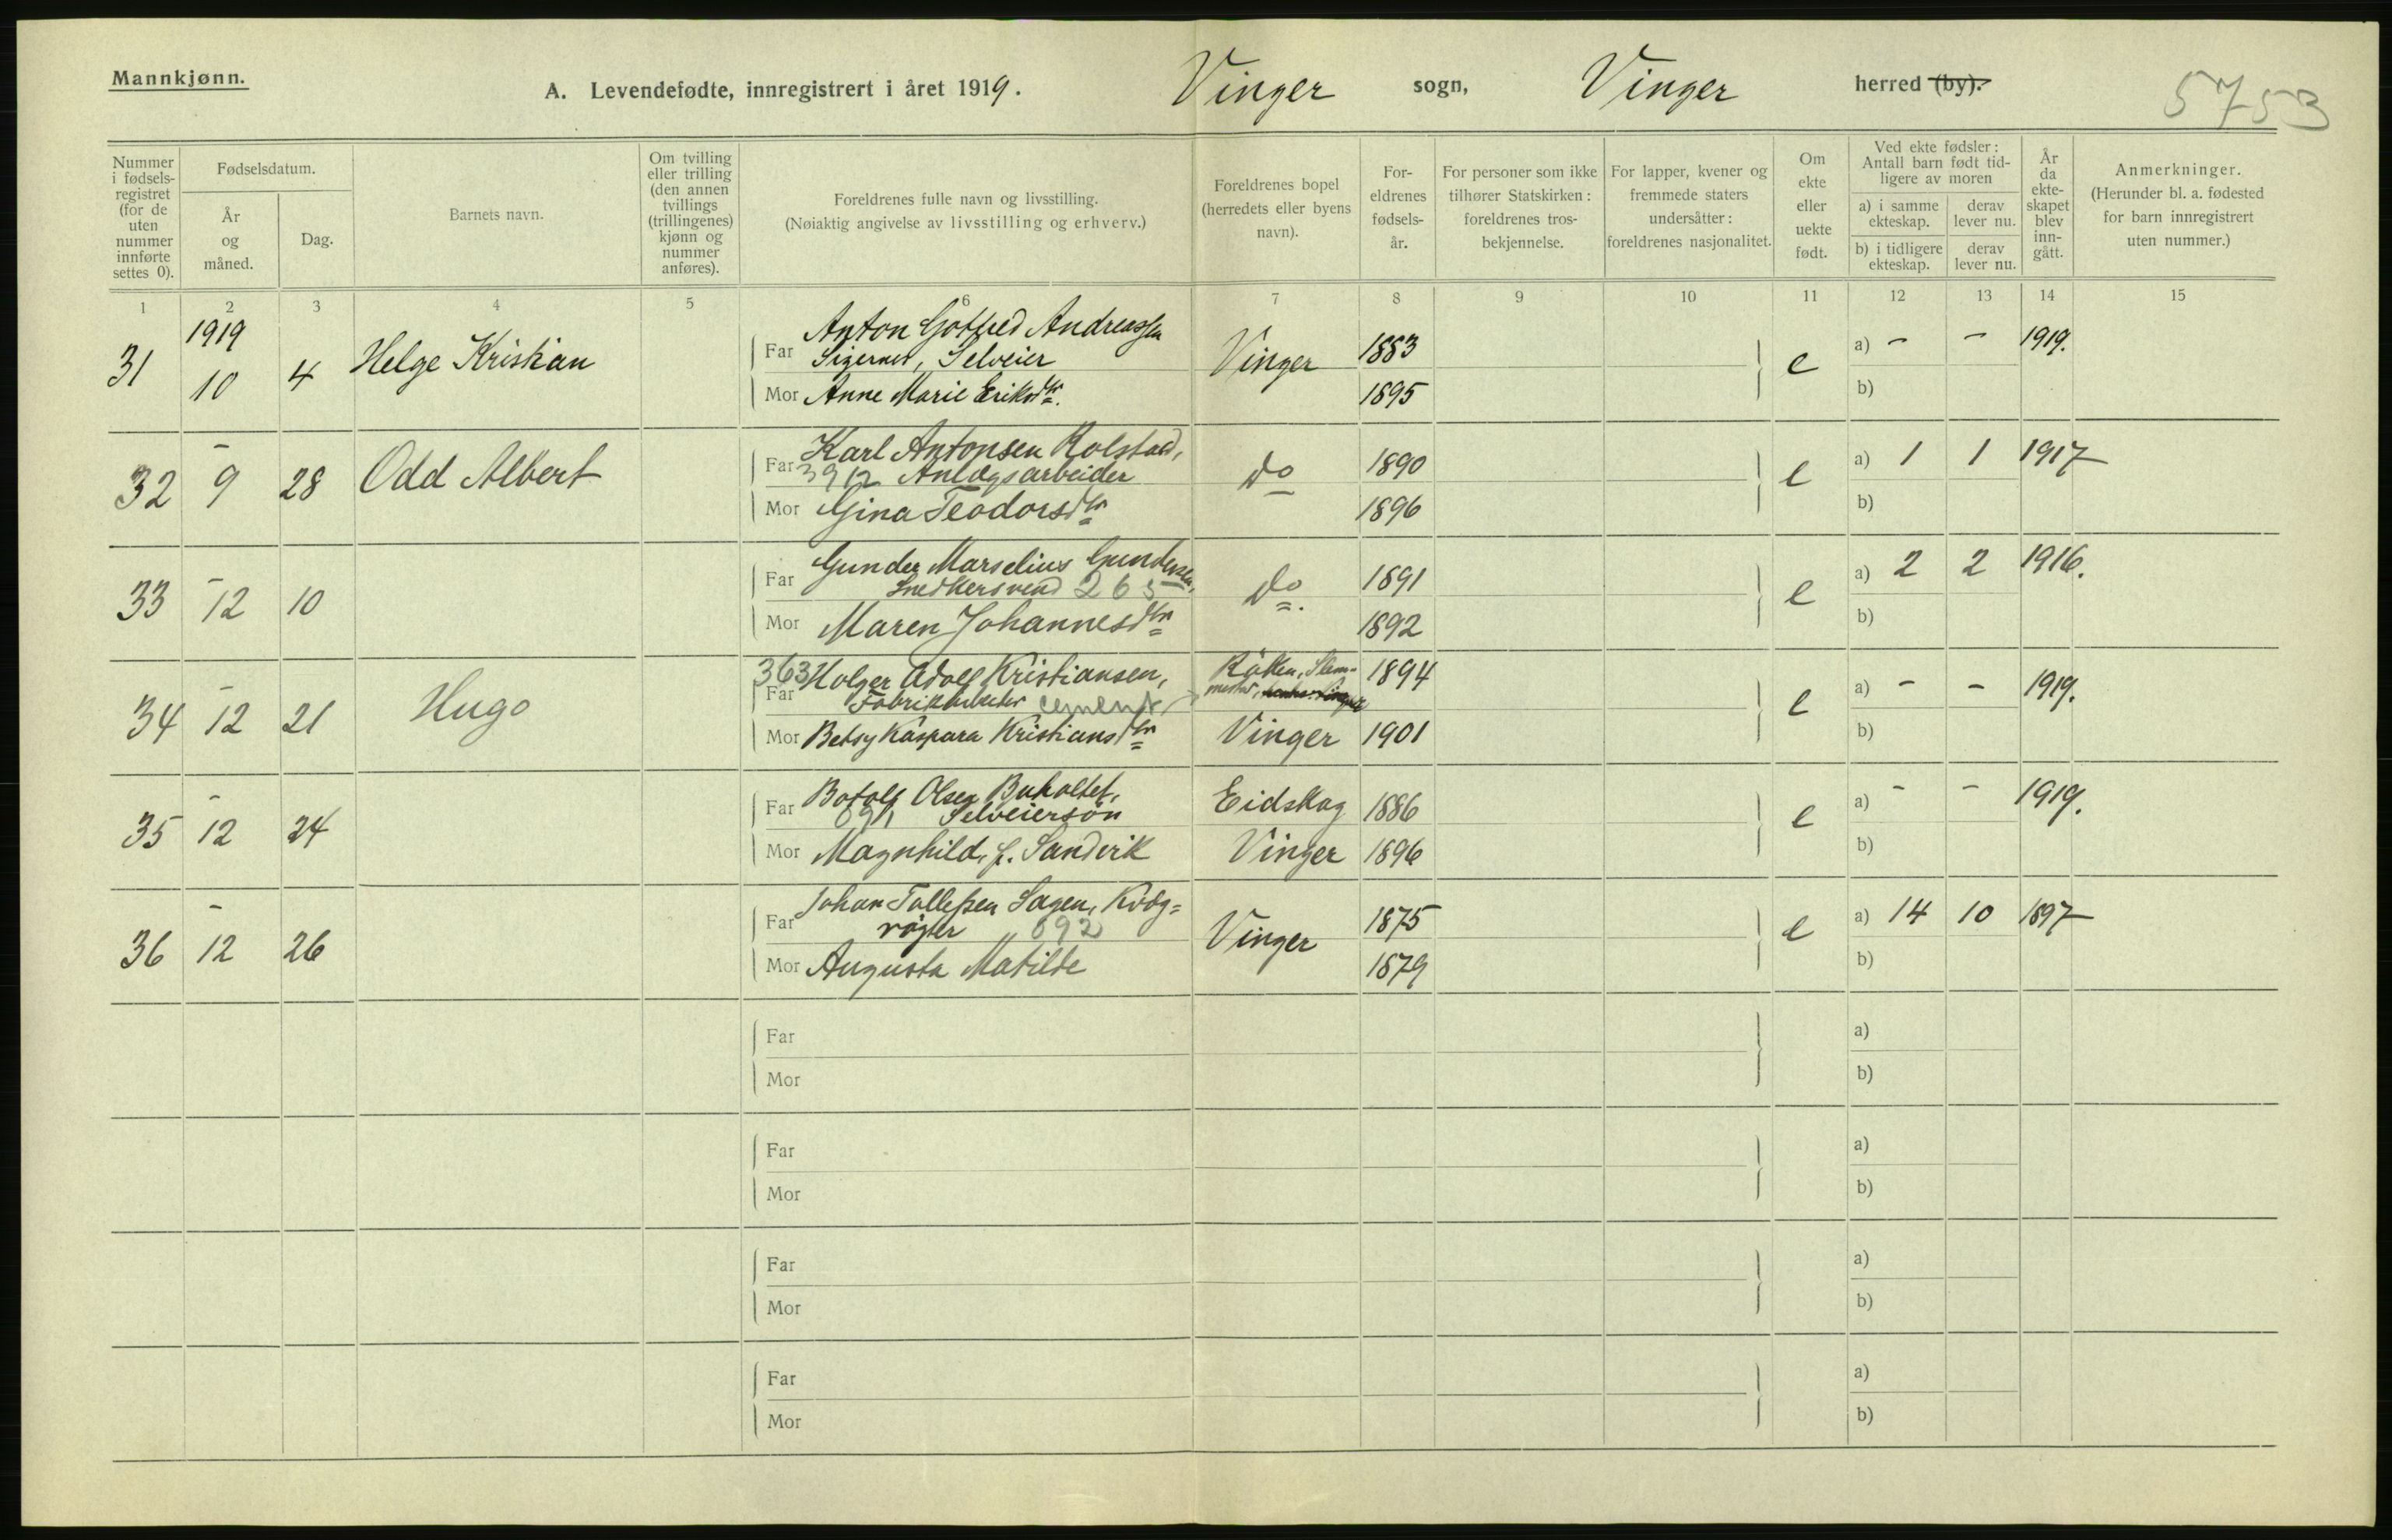 Mannkjønn.
A. Levendefødte, innregistrert i året 1919. Vinger sogn, Vinger herred (by).
5753
Nummer i fødsels-registret (for de uten nummer innførte settes 0).
Fødselsdatum.
År og måned.
Dag.
Barnets navn.
Om tvilling eller trilling (den annen tvillings (trillingenes) kjønn og nummer anføres).
Foreldrenes fulle navn og livsstilling.
(Nøiaktig angivelse av livsstilling og erhverv.)
Foreldrenes bopel (herredets eller byens navn).
For-eldrenes fødsels-år.
For personer som ikke tilhører Statskirken: foreldrenes tros-bekjennelse.
For lapper, kvener og fremmede staters undersåtter: foreldrenes nasjonalitet.
Om ekte eller uekte født.
Ved ekte fødsler: Antall barn født tid-ligere av moren
a) i samme ekteskap.
derav lever nu.
b) i tidligere ekteskap.
derav lever nu.
År da ekte-skapet blev inn-gått.
Anmerkninger.
(Herunder bl. a. fødested for barn innregistrert uten nummer.)
1 2 3 4 5 6 7 8 9 10 11 12 13 14 15
1919
31 10 4 Helge Kristian
Far Anton Gotfred Andreassen
Sigernes, Selveier Vinger 1883 e a) - - 1919.
Mor Anne Marie Eriksdtr. 1895 b)
-
32 9 28 Odd Albert
Far Karl Antonsen Rolstad,
3912 Anlægsarbeider do 1890 e a) 1 1 1917
Mor Gina Teodorsdtr 1896 b)
-
33 12 10
Far Gunder Marselius Gundersen,
Snedkersvend 265 do. 1891 e a) 2 2 1916.
Mor Maren Johannesdtr 1892 b)
-
34 12 21 Hugo
363 Far Holger Adolf Kristiansen, Röken, Slem-
Fabrikarbeider cement 1894 e a) - - 1919.
Mor Betsy Kaspara Kristiansdtr Vinger 1901 b)
-
35 12 24
Far Botolf Olsen Buholtet,
Selveiersön Eidskog 1886 e a) - - 1919.
Mor Magnhild, f. Sandvik Vinger 1896 b)
-
36 12 26
Far Johan Tollefsen Sagen, Kvæg=
røgter 692 Vinger 1875 e a) 14 10 1897
Mor Augusta Matilde 1879 b)
Far a)
Mor b)
Far a)
Mor b)
Far a)
Mor b)
Far a)
Mor b)